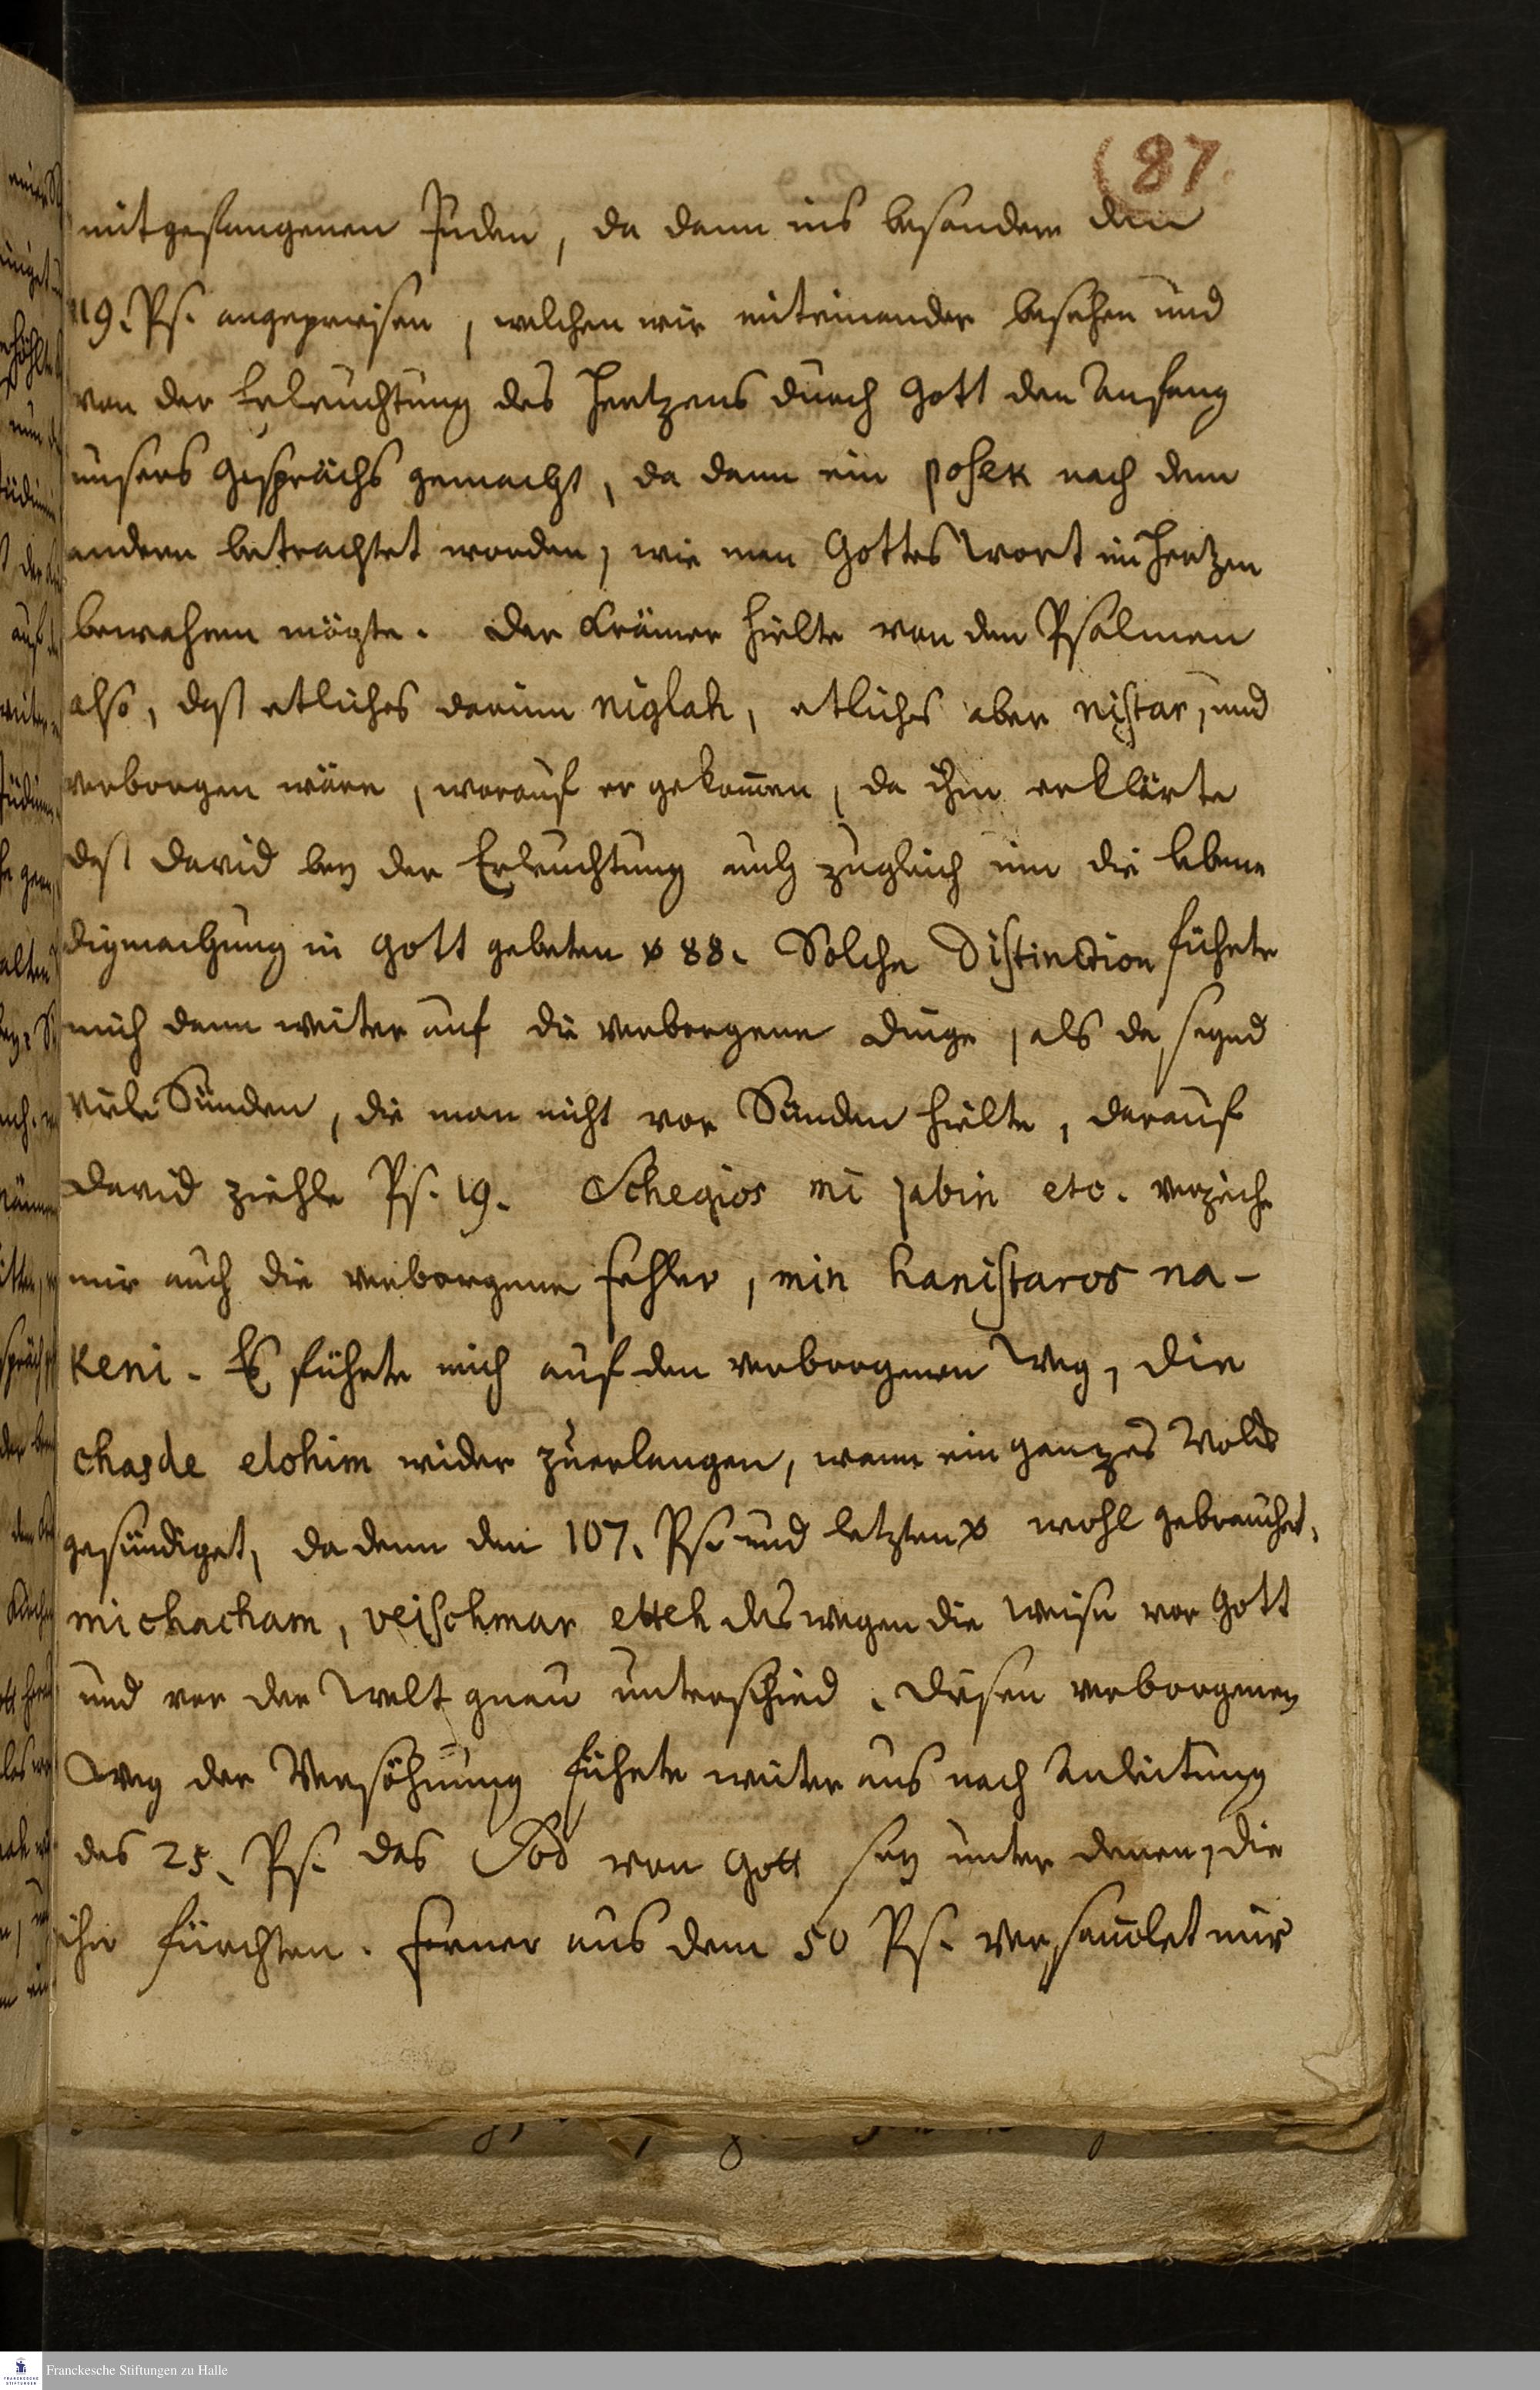 (87.
mitgefangenen Juden, da dann ins besondere den
119. Ps. angepreisen, welchen wir miteinander besehen und
von der Erleuchtung des Hertzens durch Gott den Anfang
unsers Gesprächs gemacht, da dann ein posek nach dem
andern betrachtet worden, wie man Gottes Wort im Hertzen
bewahren mögte. Der Krämer hielte von den Psalmen
also, daß etliches darinn niglah, etliches aber nistar, und
verborgen wäre, worauf er gekom̄en, da ihm erklärte
daß David bey der Erleuchtung auch zugleich um die leben
digmachung in Gott gebeten v 88. Solche Distinction führte
mich dann weiter auf die verborgene Dinge, als da seynd
viele Sünden, die man nicht vor Sünden hielte, darauf
David ziehle Ps. 19. Schegios mi jabin etc. verzeihe
mir auch die verborgene Fehler, min hanistaros na-
keni. Es führte mich auf den verborgenen Weg, die
chasde elohim wider zuerlangen, wann ein gantzes Volck
gesündiget, da denn den 107. Ps. und letzten v wohl gebrauchet.
mi chacham, veischmar elleh deswegen die Weise vor Gott
und vor der Welt genau unterschied. Diesen verborgenen
Weg der Versöhnung führte weiter aus nach Anleitung
des 25. Ps. das Sod von Gott sey unter denen, die
ihn fürchten. Ferner aus dem 50 Ps. versam̄let mir
Franckesche Stiftungen zu Halle